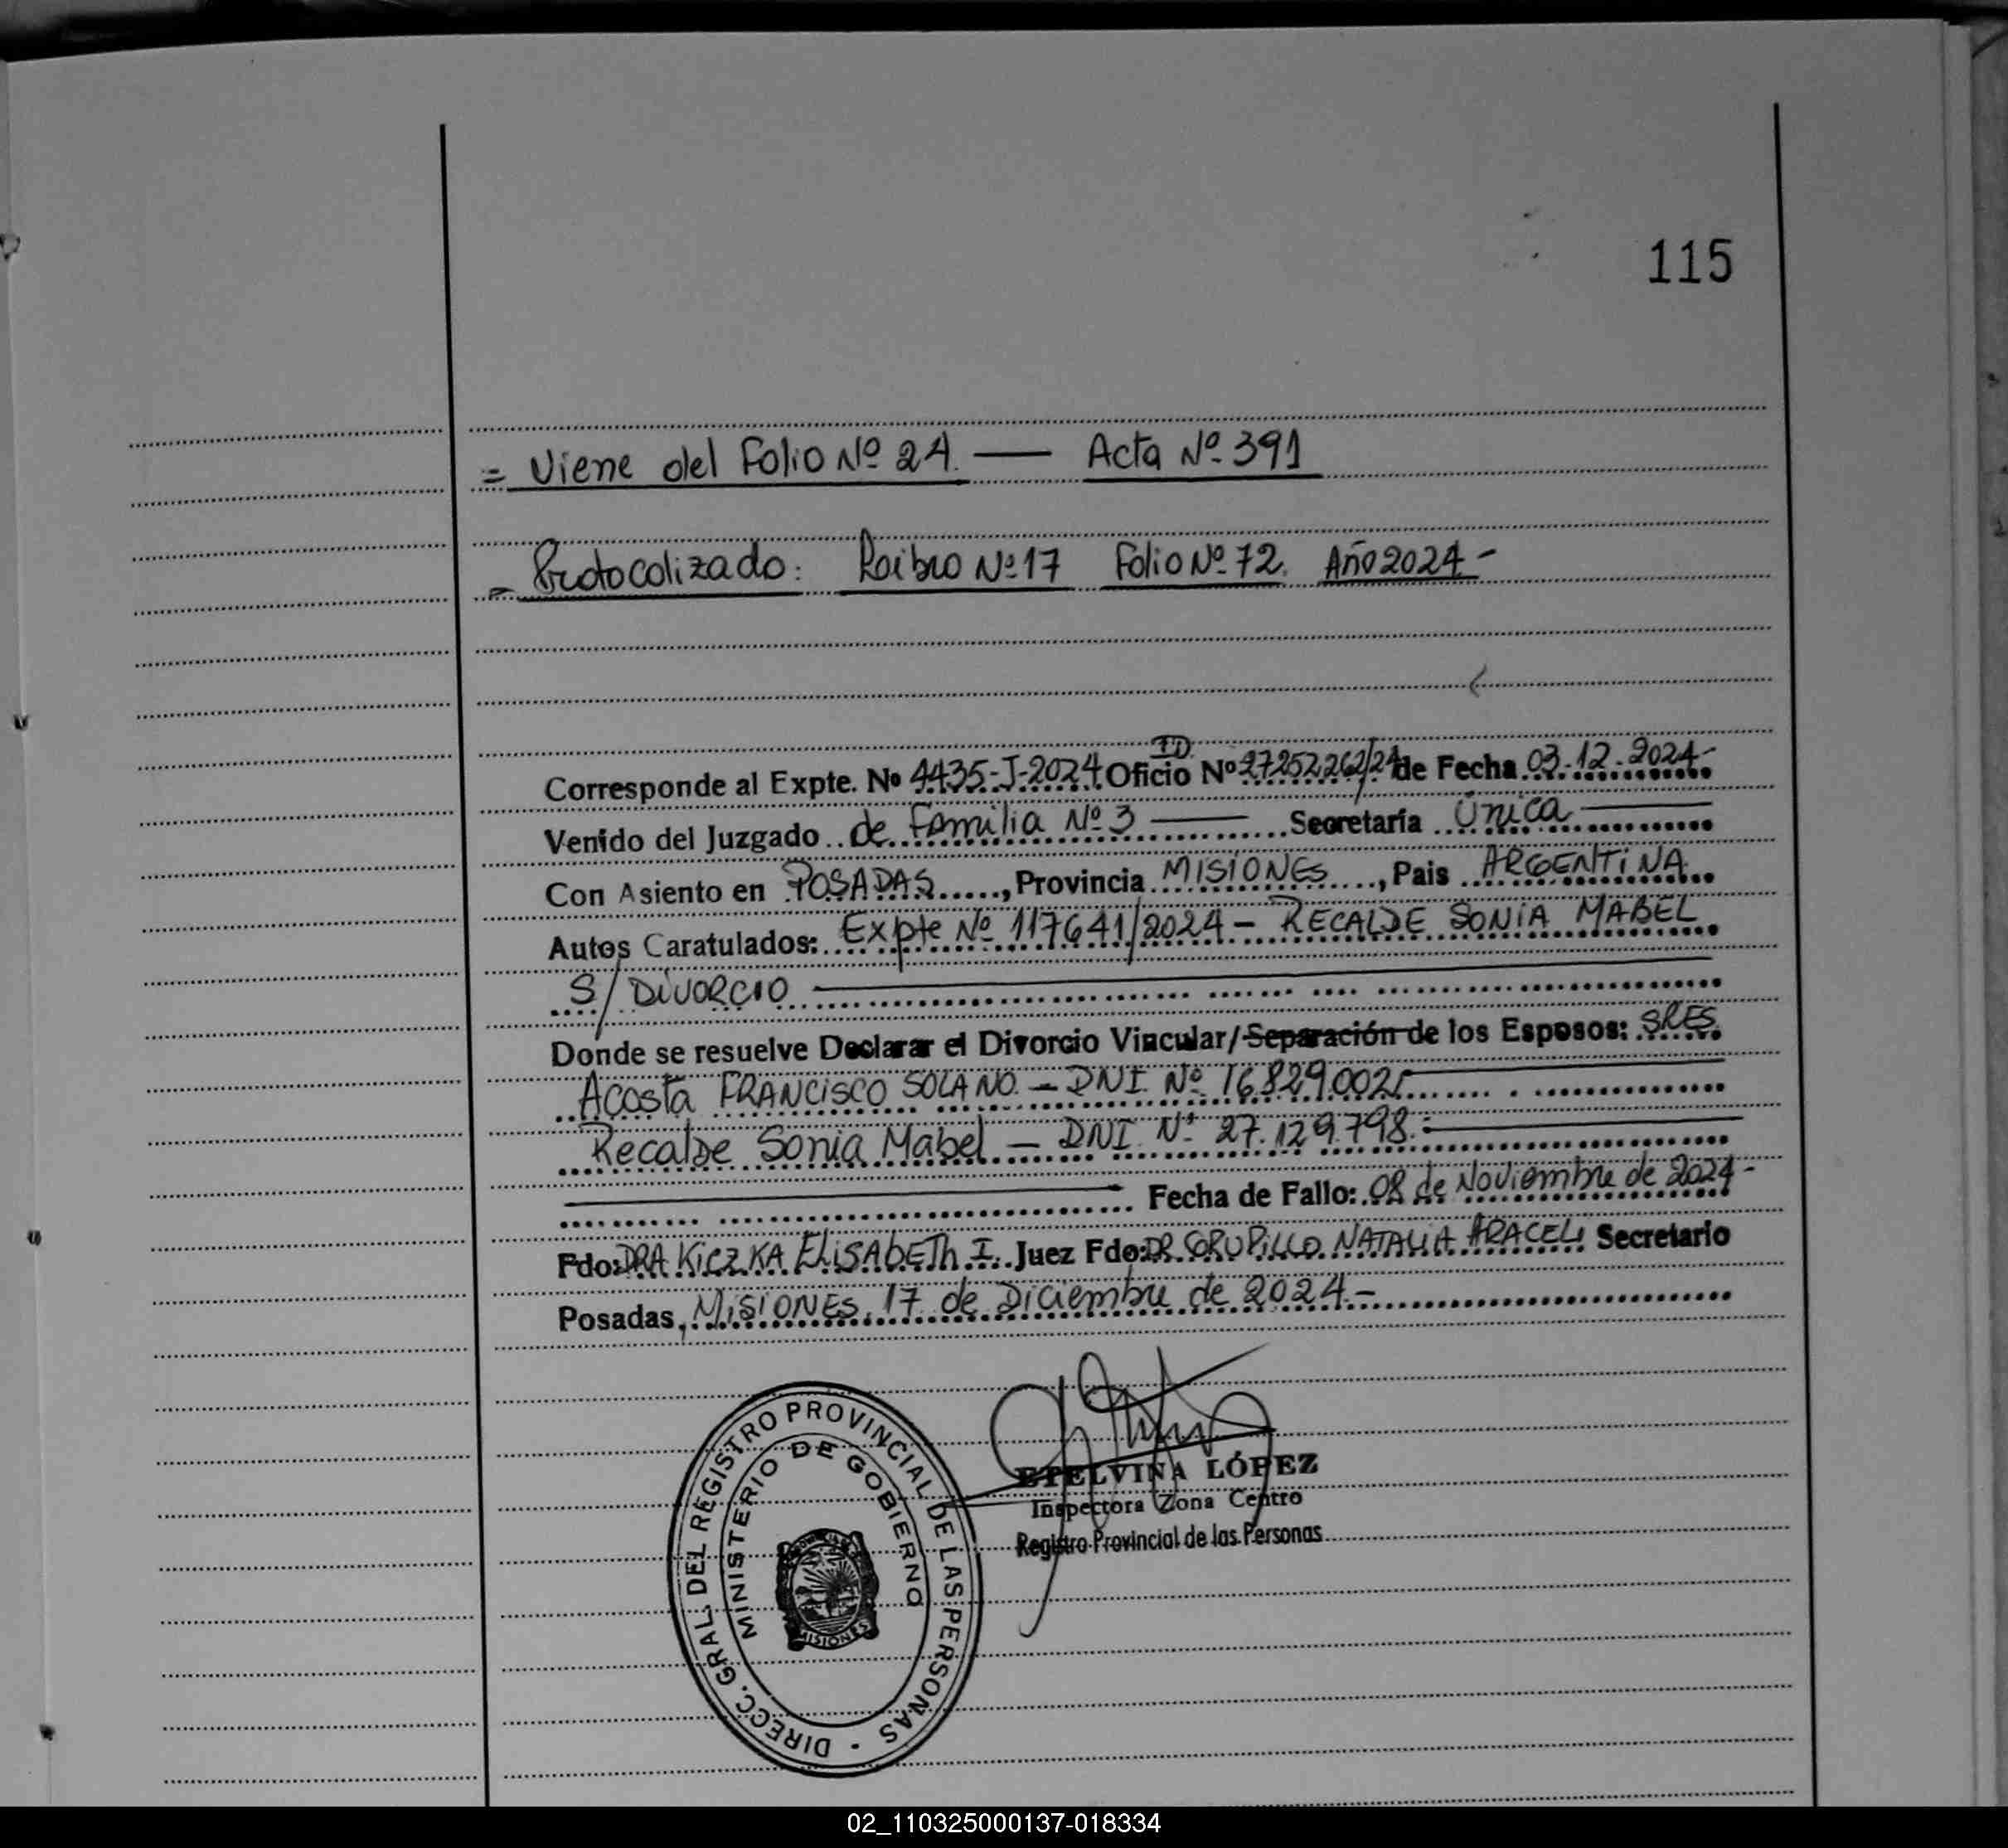 115
= Viene del Folio Nº 24. — Acta Nº 391
= Protocolizado: Roibro Nº 17 Folio Nº 72. Año 2024 -
ID
Corresponde al Expte. Nº 4435-J-2024 Oficio Nº 27252262/24 de Fecha 03.12.2024-
Venido del Juzgado de Familia Nº 3 — Secretaría Única —
Con Asiento en POSADAS, Provincia MISIONES, Pais ARGENTINA.
Autos Caratulados: Expte Nº 117641/2024 - RECALDE SONIA MABEL
S/ DIVORCIO —
Donde se resuelve Declarar el Divorcio Vincular/Separación de los Esposos: SRES.
Acosta FRANCISCO SOLANO. - DNI. Nº 16.829.002 —
Recalde Sonia Mabel - DNI. Nº 27.129.798. —
Fecha de Fallo: 08 de Noviembre de 2024-
Fdo: DRA KICZKA ELISABETh I. Juez Fdo: DR. NATALIA ARACELI Secretario
Posadas, MISIONES, 17 de Diciembre de 2024.-
DIRECC. GRAL. DEL REGISTRO PROVINCIAL DE LAS PERSONAS -
MINISTERIO DE GOBIERNO
MISIONES
ETELVINA LÓPEZ
Inspectora Zona Centro
Registro Provincial de las Personas
02_110325000137-018334